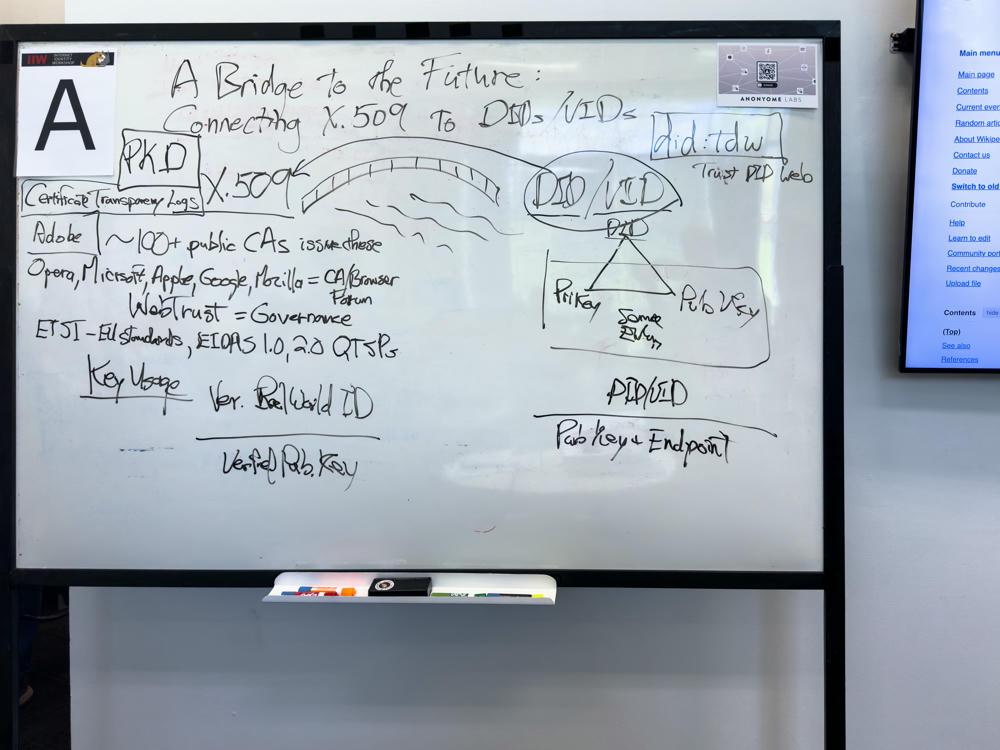 IIW INTERNET IDENTITY WORKSHOP
A
A Bridge to the Future:
Connecting X.509 to DIDs/VIDs
ANONYOME LABS
PKD
X.509
Certificate Transparency Logs
DID/VID
did:tdw
Trust DID Web
Adobe
~100+ public CAs issue these
Opera, Microsft, Apple, Google, Mozilla = CA/Browser
Forum
WebTrust = Governance
ETSI-EU standards, EIDAS 1.0, 2.0 QTSPs
Key Usage
Ver. Real World ID
Verified Pub. Key
DID
Pri Key
Pub Key
DID/VID
Pub Key + Endpoint
Main menu
Main page
Contents
Current
Random
About
Contact us
Donate
Switch to old
Contribute
Help
Learn to edit
Community
Recent changes
Upload file
Contents hide
(Top)
See also
References